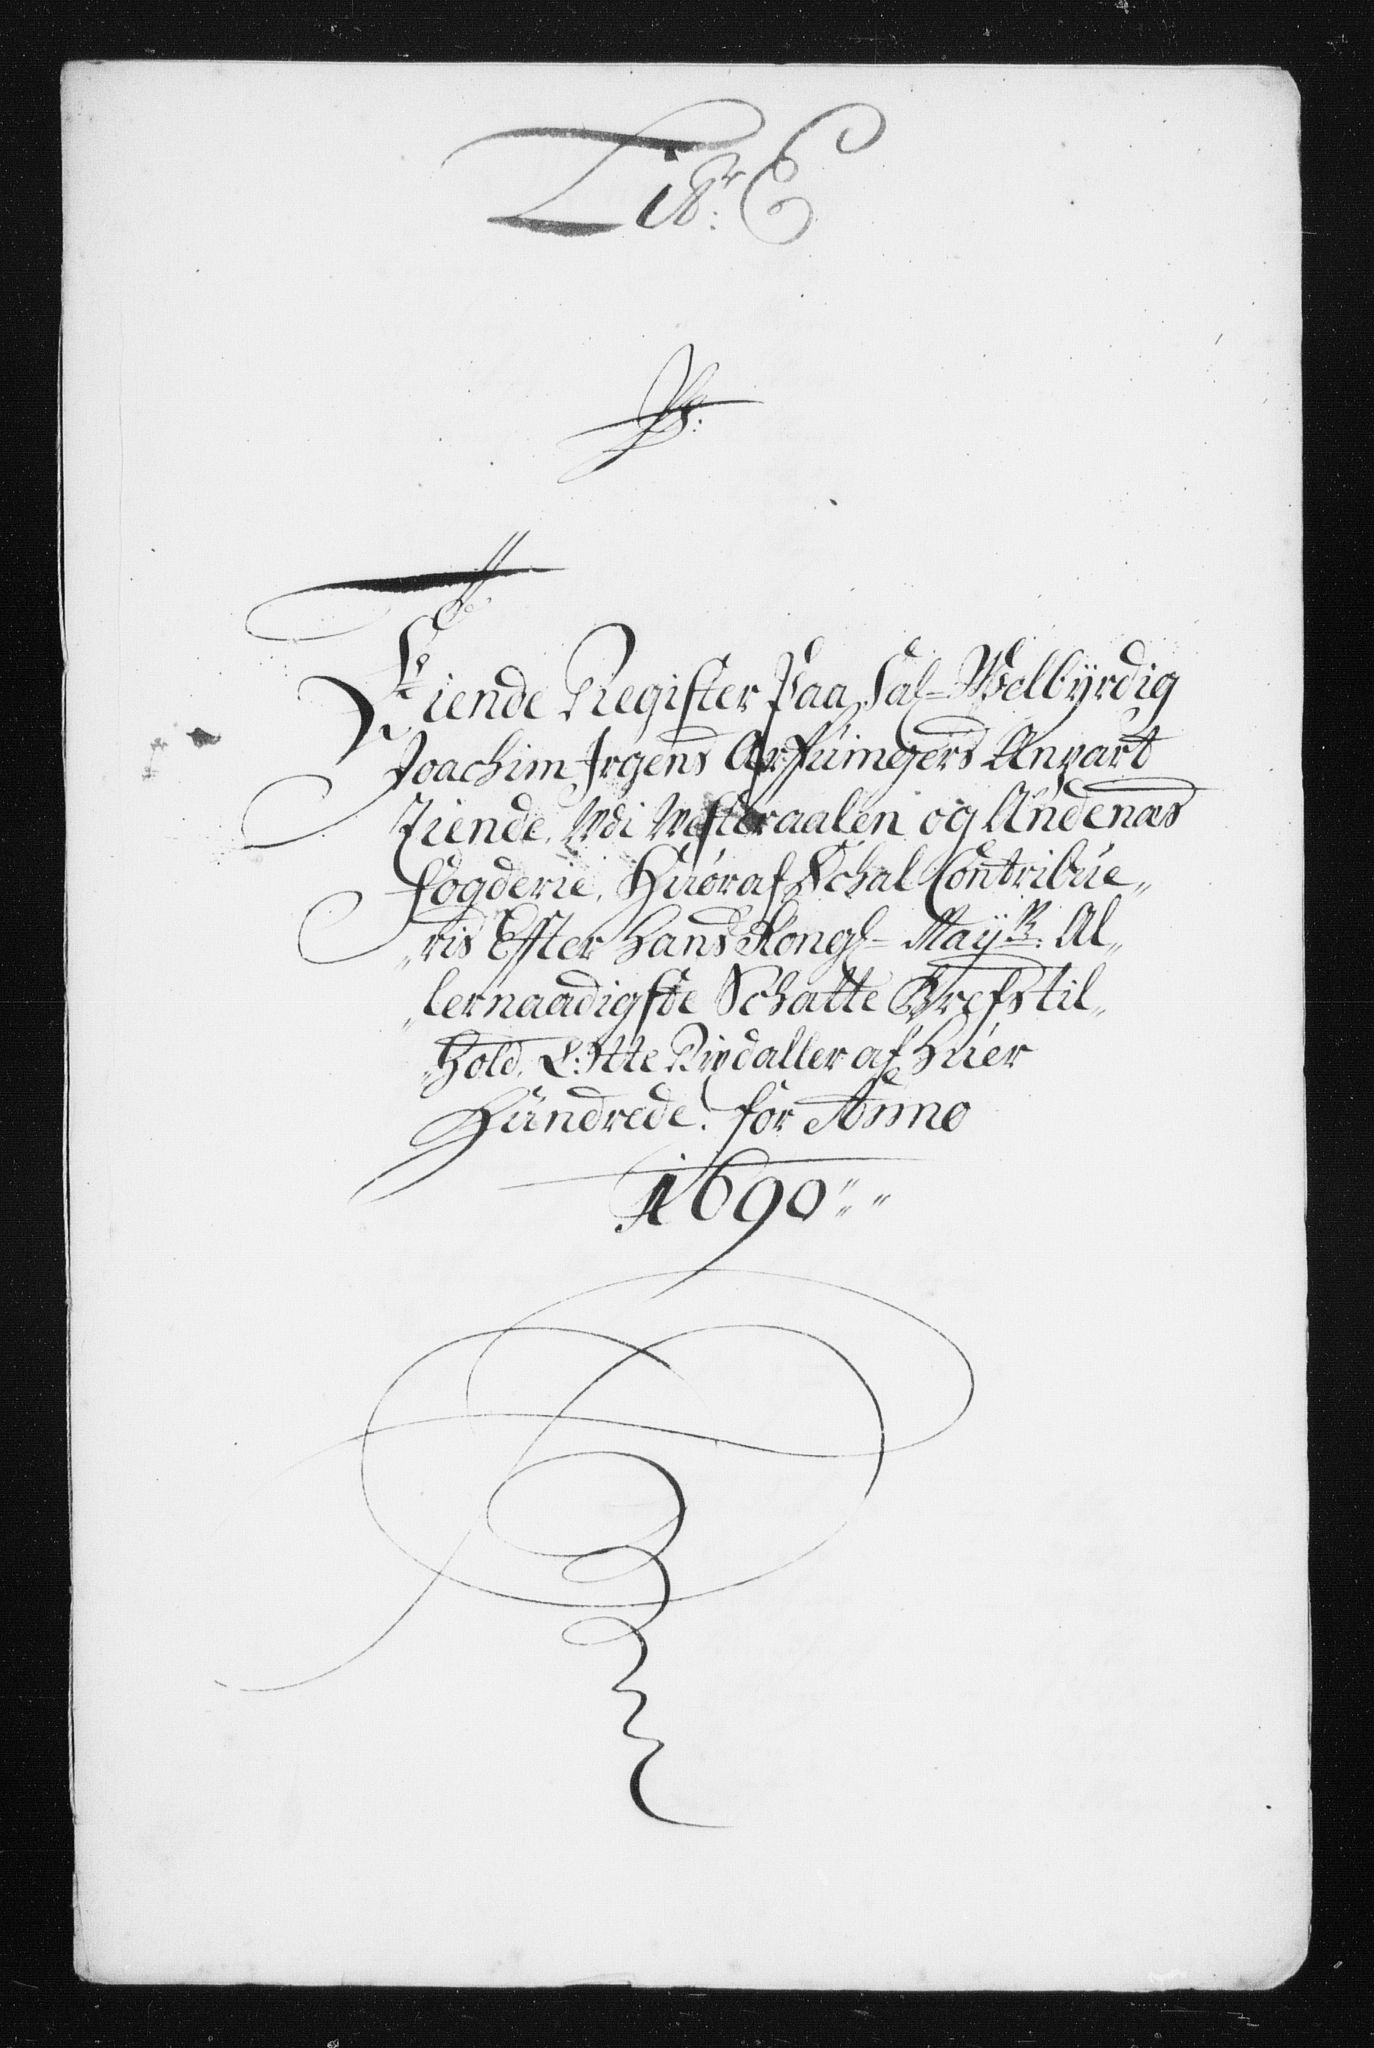 Litr: E
Tiende Register Paa Sal= Welbÿrdig
Joachim Jrgens Arffuingers Anpart
Tiende. Udi Westeraalen og Andenæs
fogderie, Huoraf Schal Contribue„
„ris Effter Hans Kongl= Maÿtz: Al„
„lernaadigste Schatte Brefs til„
„hold. Otte Rixdaller af Huer
Hundrede. for Anno
1690„„